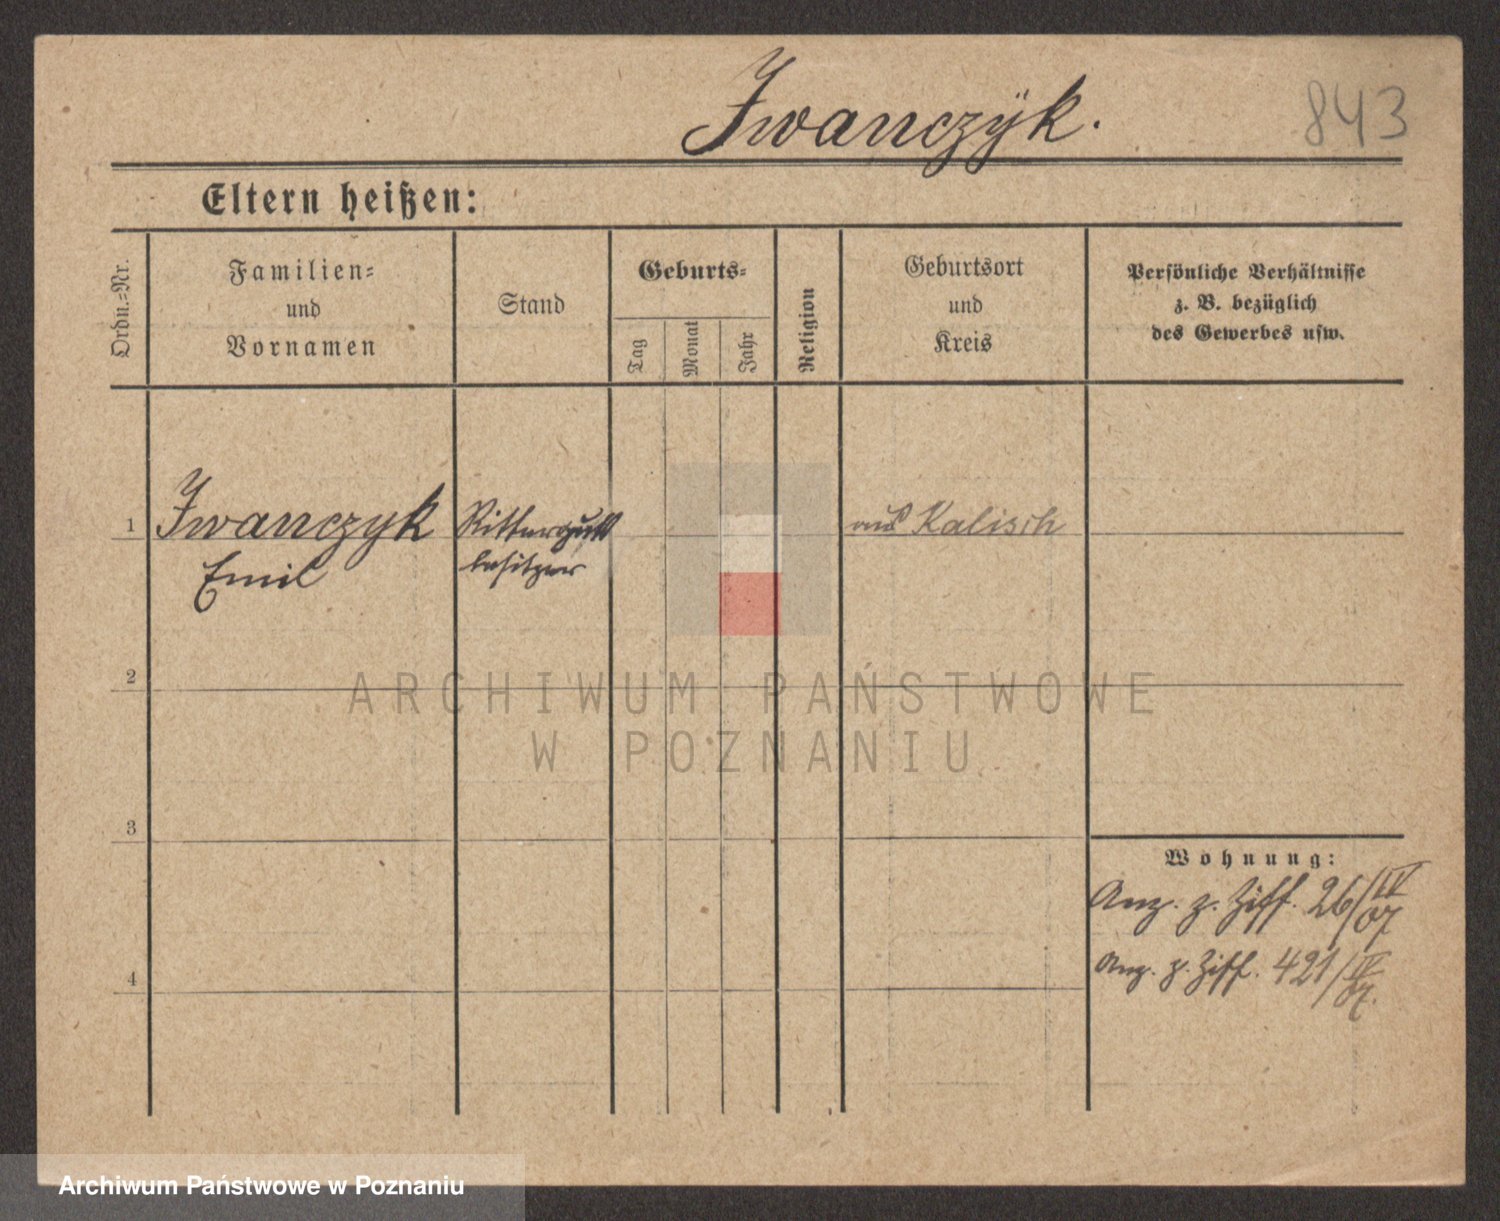 Iwanczÿk.
843
Eltern heißen:
Ordn.=Nr.
Familien=
und
Vornamen
Stand
Geburts=
Tag
Monat
Jahr
Religion
Geburtsort
und
Kreis
Persönliche Verhältnisse
z. B. bezüglich
des Gewerbes usw.
1
Iwanczyk
Emil
Ritterguts
besitzer
aus Kalisch
2
ARCHIWUM PAŃSTWOWE
W POZNANIU
3
Wohnung:
Anz. z. Ziff. 26/IV 07
Anz. z. Ziff. 421/IV 07.
4
Archiwum Państwowe w Poznaniu